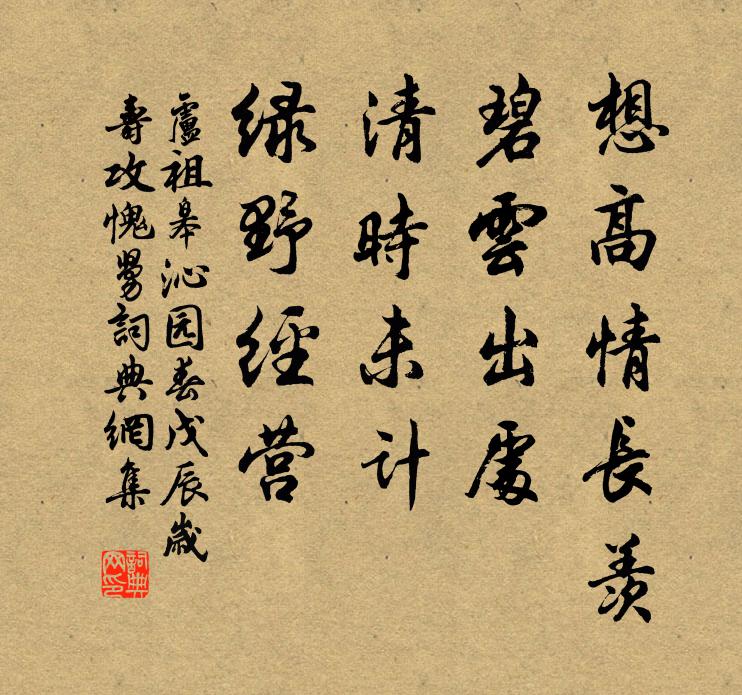 想高情長羨
碧雲出處
清時未計
绿野經营
盧祖皋沁园春戊辰歲
壽攻愧舅詞典網集
詞典網印